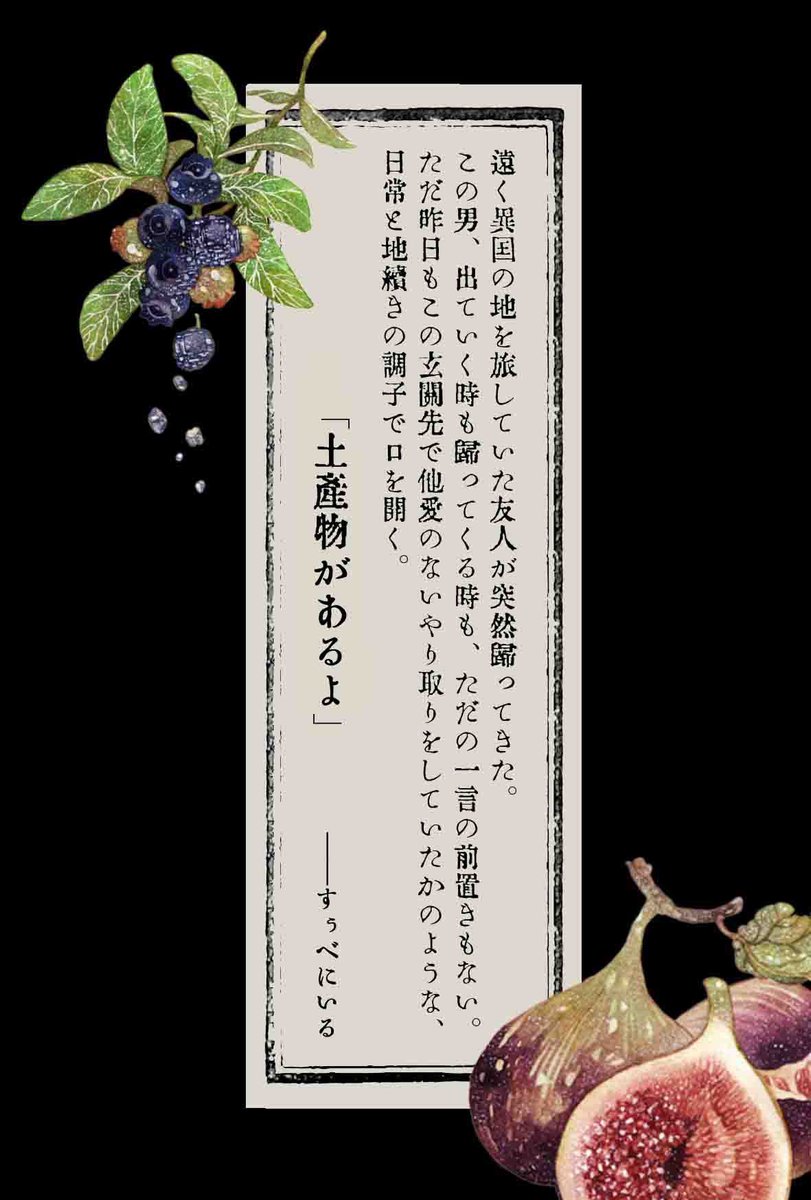 遠く異国の地を旅していた友人が突然歸ってきた。
この男、出ていく時も歸ってくる時も、ただの一言の前置きもない。
ただ昨日もこの玄關先で他愛のないやり取りをしていたかのような、
日常と地續きの調子で口を開く。
「土產物があるよ」
──すぅべにいる